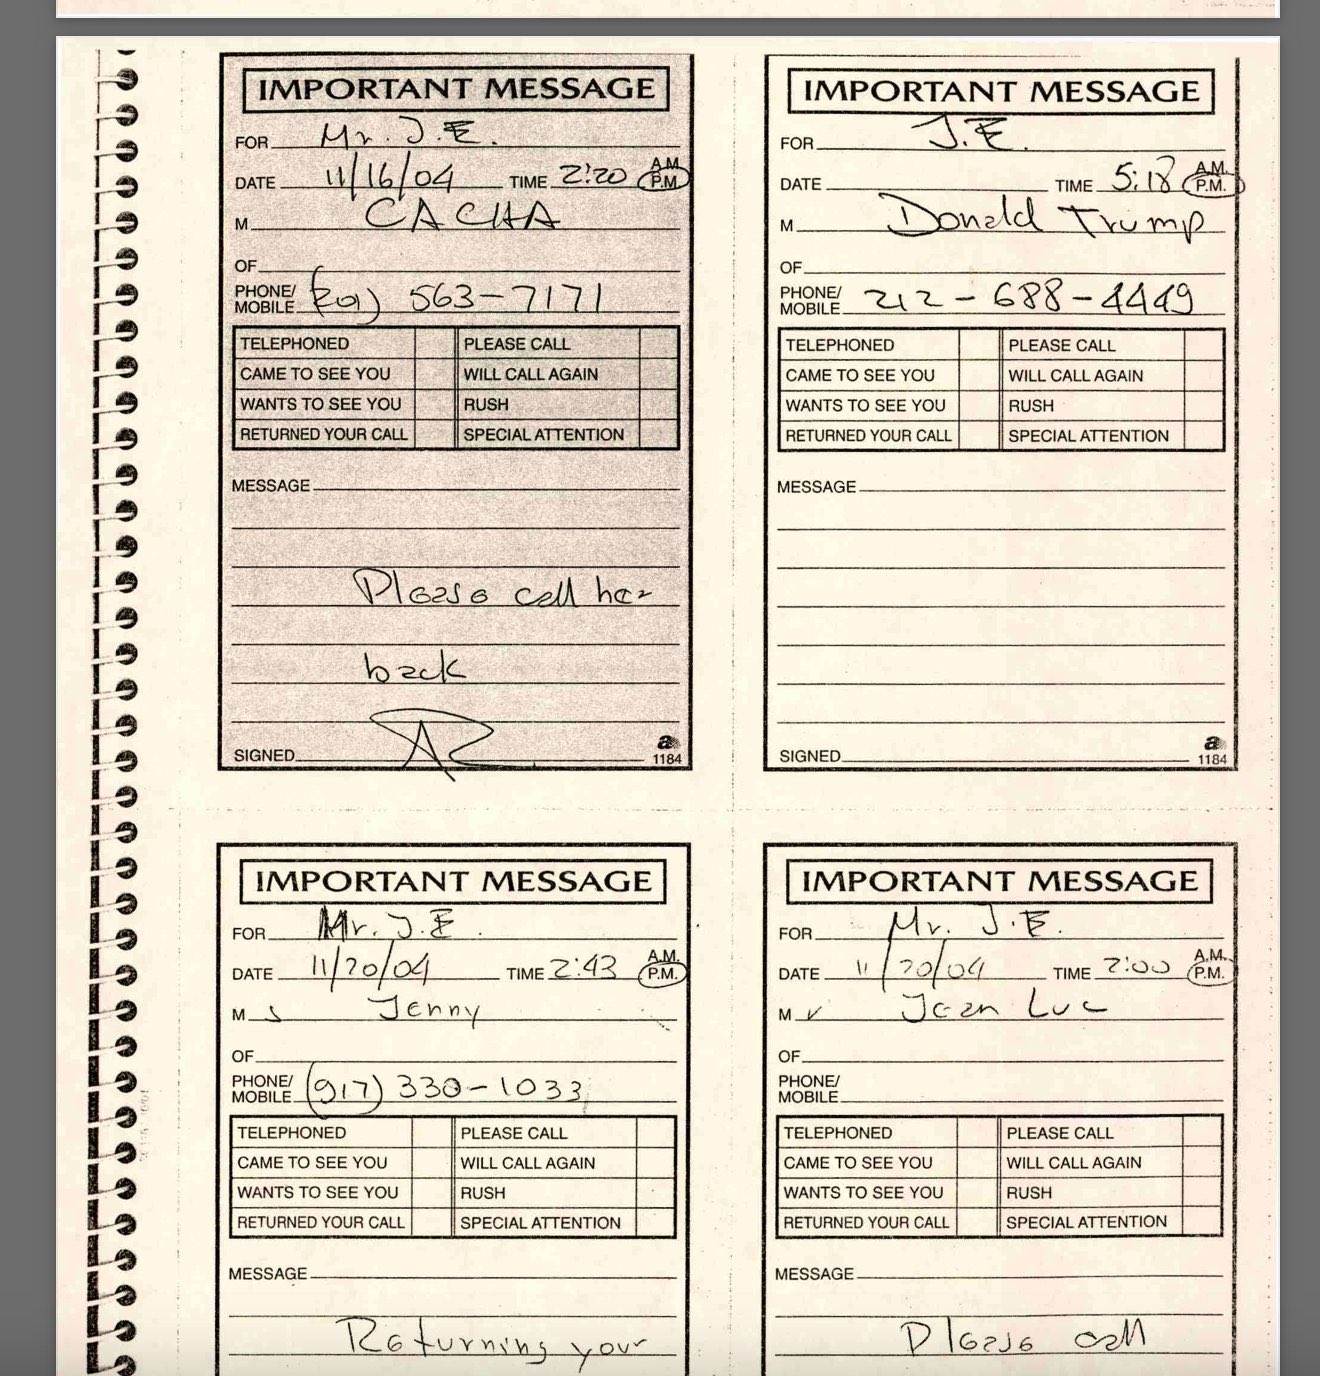 IMPORTANT MESSAGE
FOR Mr. J.E.
DATE 11/16/04 TIME 2:20 A.M. P.M.
M CACHA
OF
PHONE/
MOBILE (201) 563-7171
TELEPHONED PLEASE CALL
CAME TO SEE YOU WILL CALL AGAIN
WANTS TO SEE YOU RUSH
RETURNED YOUR CALL SPECIAL ATTENTION
MESSAGE
Please call her
back
SIGNED
1184
IMPORTANT MESSAGE
FOR J.E.
DATE TIME 5:18 A.M. P.M.
M Donald Trump
OF
PHONE/
MOBILE 212-688-4449
TELEPHONED PLEASE CALL
CAME TO SEE YOU WILL CALL AGAIN
WANTS TO SEE YOU RUSH
RETURNED YOUR CALL SPECIAL ATTENTION
MESSAGE
SIGNED
a
1184
IMPORTANT MESSAGE
FOR Mr. J.E.
DATE 11/20/04 TIME 2:43 A.M. P.M.
M Jenny
OF
PHONE/
MOBILE (917) 330-1033
TELEPHONED PLEASE CALL
CAME TO SEE YOU WILL CALL AGAIN
WANTS TO SEE YOU RUSH
RETURNED YOUR CALL SPECIAL ATTENTION
MESSAGE
Returning your
IMPORTANT MESSAGE
FOR Mr. J.E.
DATE 11/20/04 TIME 2:00 A.M. P.M.
M Jean Luc
OF
PHONE/
MOBILE
TELEPHONED PLEASE CALL
CAME TO SEE YOU WILL CALL AGAIN
WANTS TO SEE YOU RUSH
RETURNED YOUR CALL SPECIAL ATTENTION
MESSAGE
Please call